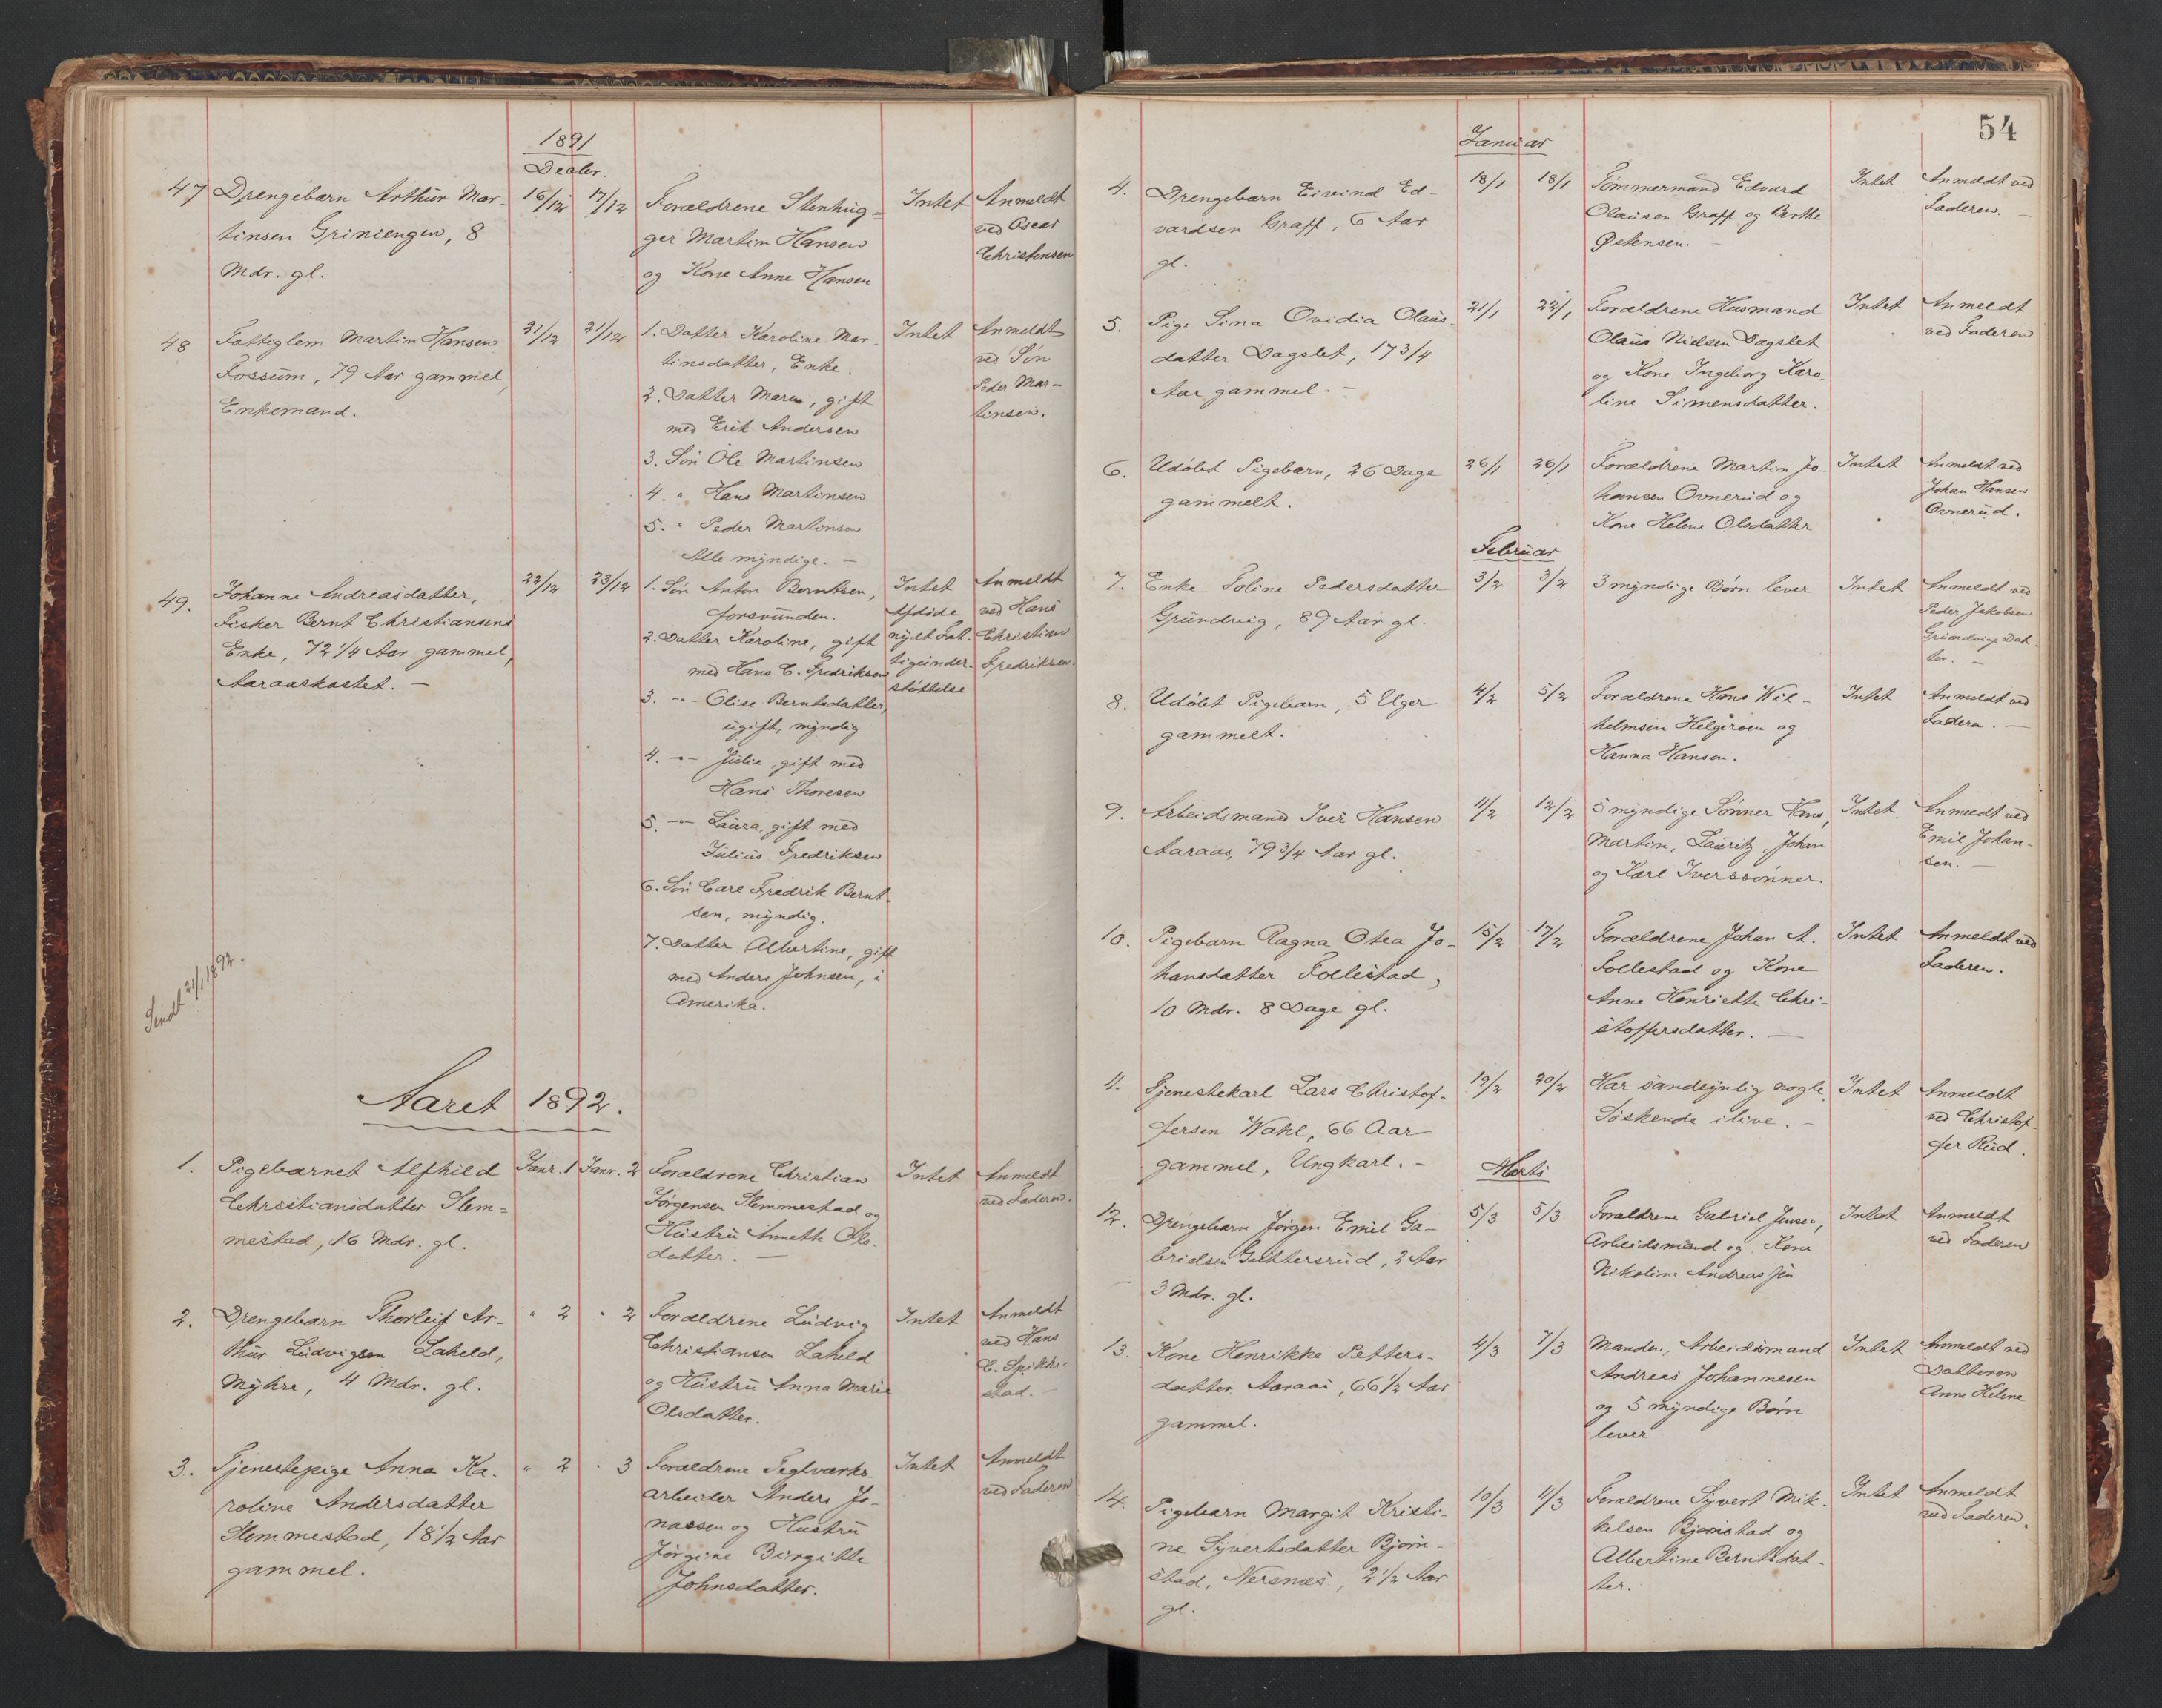 1891
Decbr.
47 Drengebarn Arthur Mar-
tinsen Griniengen, 8
Mdr. gl.
16/12 17/12
Forældrene Stenhug-
ger Martin Hansen
og Kone Anne Hansen
Intet
Anmeldt
ved Oscar
Christensen
48 Fattiglem Martin Hansen
Fossum, 79 Aar gammel,
Enkemand.
21/12 21/12
1. Datter Karoline Mar-
tinsdatter, Enke.
2. Datter Maren, gift
med Erik Andersen
3. Søn Ole Martinsen
4. " Hans Martinsen
5. " Peder Martinsen
Alle myndige. -
Intet
Anmeldt
ved Søn
Peder Mar-
tinsen.
49. Johanne Andreasdatter,
Fisker Bernt Christiansens
Enke, 72 1/4 Aar gammel,
Aaraaskastet. -
22/12 23/12
1. Søn Anton Berntsen,
forsvunden.
2. Datter Karoline, gift
med Hans C. Fredriksen
3. -"- Olise Berntsdatter,
ugift, myndig
4. -"- Julie, gift med
Hans Thoresen
5. -"- Laura, gift med
Julius Fredriksen
6. Søn Carl Fredrik Bernt-
sen, myndig.
7. Datter Albertine, gift
med Anders Johnsen, i
Amerika.
Intet
Afdøde
nydt Fat-
tigunder-
støttelse
Anmeldt
ved Hans
Christian
Fredriksen.
Sendt 21/1 1892.
Aaret 1892.
1. Pigebarnet Alfhild
Christiansdatter Slem-
mestad, 16 Mdr. gl.
Janr. 1 Janr. 2
Forældrene Christian
Jørgensen Slemmestad og
Hustru Annette Ols-
datter. -
Intet
Anmeldt
ved Faderen.
2. Drengebarn Thorleif Ar-
thur Ludvigsen Laheld,
Myhre, 4 Mdr. gl.
" 2 " 2
Forældrene Ludvig
Christiansen Laheld
og Hustru Anna Marie
Olsdatter.
Intet
Anmeldt
ved Hans
C. Spikke-
stad. -
3. Tjenestepige Anna Ka-
roline Andersdatter
Slemmestad, 18 1/2 Aar
gammel.
" 2 " 3
Forældrene Teglværks-
arbeider Anders Jo-
nassen og Hustru
Jørgine Birgitte
Johnsdatter.
Intet
Anmeldt
ved Faderen
54
Januar
4. Drengebarn Eivind Ed-
vardsen Graff, 6 Aar
gl.
18/1 18/1
Tømmermand Edvard
Olausen Graff og Berthe
Østensen. -
Intet
Anmeldt ved
Faderen. -
5. Pige Sina Ovidia Olaus-
datter Dagslet, 17 3/4
Aar gammel. -
21/1 22/1
Forældrene Husmand
Olaus Nielsen Dagslet
og Kone Ingeborg Karo-
line Simensdatter.
Intet
Anmeldt
ved Faderen
6. Udøbt Pigebarn, 26 Dage
gammelt.
26/1 26/1
Forældrene Martin Jo-
hansen Ovnerud og
Kone Helene Olsdatter
Intet
Anmeldt ved
Johan Hansen
Ovnerud.
Februar
7. Enke Toline Pedersdatter
Grundvig, 89 Aar gl.
3/2 3/2
3 myndige Børn lever
Intet
Anmeldt ved
Peder Jakobsen
Grundvigs Dat-
ter. -
8. Udøbt Pigebarn, 5 Uger
gammelt.
4/2 5/2
Forældrene Hans Wil-
helmsen Helgeroen og
Hanna Hansen.
Intet
Anmeldt ved
Faderen. -
9. Arbeidsmand Iver Hansen
Aaraas, 79 3/4 Aar gl.
11/2 12/2
5 myndige Sønner Hans,
Martin, Lauritz, Johan
og Karl Iverssønner.
Intet.
Anmeldt ved
Emil Johan-
sen. -
10. Pigebarn Ragna Otea Jo-
hansdatter Follestad,
10 Mdr. 8 Dage gl.
15/2 17/2
Forældrene Johan A.
Follestad og Kone
Anne Henriette Chri-
stoffersdatter. -
Intet
Anmeldt ved
Faderen.
11. Tjenestekarl Lars Christof-
fersen Wahl, 66 Aar
gammel, Ungkarl. -
19/2 20/2
Har sandsynlig nogle
Søskende ilive. -
Intet
Anmeldt
ved Christof-
fer Rud.
Marts
12. Drengebarn Jørgen Emil Ga-
brielsen Guttersrud, 2 Aar
3 Mdr. gl.
5/3 5/3
Forældrene Gabriel Jensen,
Arbeidsmand og Kone
Nikoline Andreas
Intet
Anmeldt
ved Faderen
13. Kone Henrikke Petters-
datter Aaraas, 66 1/2 Aar
gammel.
4/3 7/3
Manden, Arbeidsmand
Andreas Johannesen
og 5 myndige Børn
lever
Intet
Anmeldt ved
Datteren
Anne Helene
14. Pigebarn Margit Kristi-
ne Syvertsdatter Bjørn-
stad, Nersnæs, 2 1/2 Aar
gl.
10/3 11/3
Forældrene Syvert Mik-
kelsen Bjørnstad og
Albertine Berntsdat-
ter.
Intet
Anmeldt
ved Faderen.